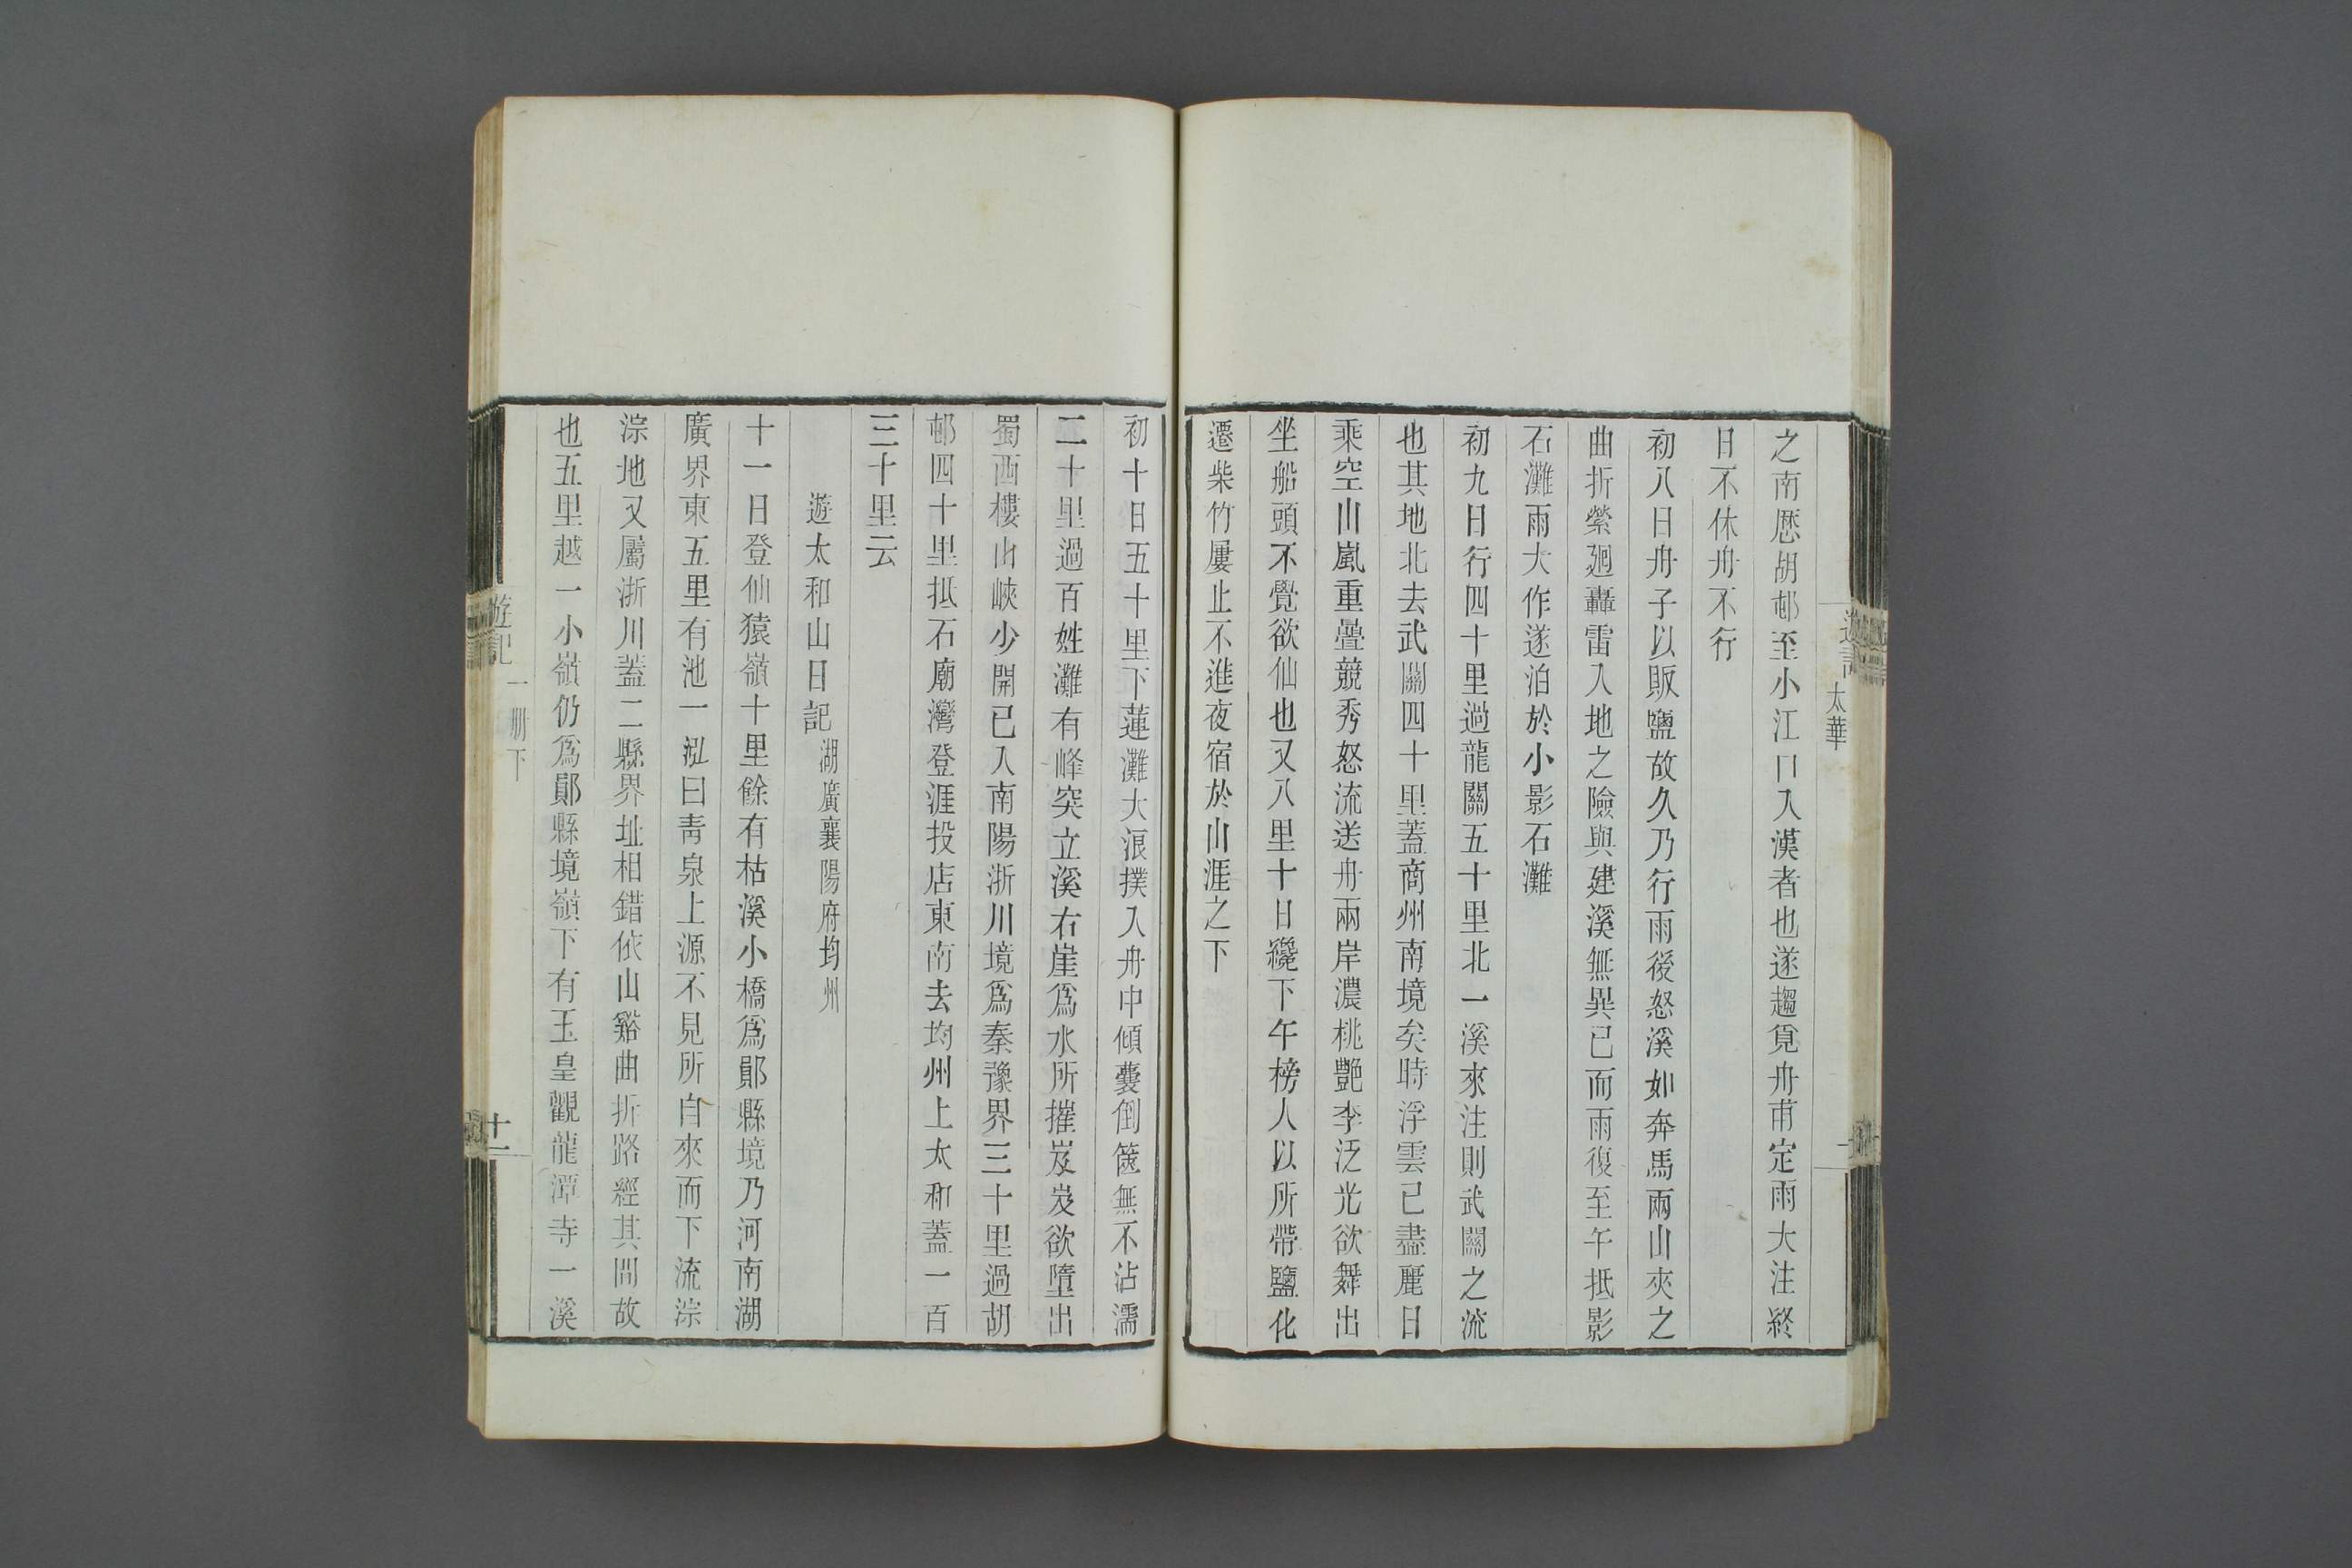 太華
之南厯胡邨至小江口入漢者也遂趨覓舟甫定雨大注終
日不休舟不行
初八日舟子以販鹽故久乃行雨後怒溪如奔馬兩山夾之
曲折縈廻轟雷入地之險與建溪無異已而雨復至午抵影
石灘雨大作遂泊於小影石灘
初九日行四十里過龍關五十里北一溪來注則武關之流
也其地北去武關四十里蓋商州南境矣時浮雲已盡麗日
乘空山嵐重疊競秀怒流送舟兩岸濃桃艷李泛光欲舞出
坐船頭不覺欲仙也又八里十日纔下午榜人以所帶鹽化
遷柴竹屢止不進夜宿於山涯之下
初十日五十里下蓮灘大浪撲入舟中傾囊倒篋無不沾濡
二十里過百姓灘有峰突立溪右崖爲水所摧岌岌欲墮出
蜀西樓山峽少開已入南陽浙川境爲秦豫界三十里過胡
邨四十里抵石廟灣登涯投店東南去均州上太和蓋一百
三十里云
遊太和山日記湖廣襄陽府均州
十一日登仙猿嶺十里餘有枯溪小橋爲鄖縣境乃河南湖
廣界東五里有池一泓曰青泉上源不見所自來而下流淙
淙地又屬浙川蓋二縣界址相錯依山谿曲折路經其間故
也五里越一小嶺仍爲鄖縣境嶺下有玉皇觀龍潭寺一溪
遊記
一册下
十一